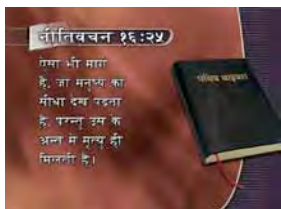 नीतिवचन १६:२५
ऐसा भी मार्ग
है, जो मनुष्य को
सीधा देख पडता
है, परन्तु उस के
अन्त में मृत्यु ही
मिलती है।
पवित्र बाइबल